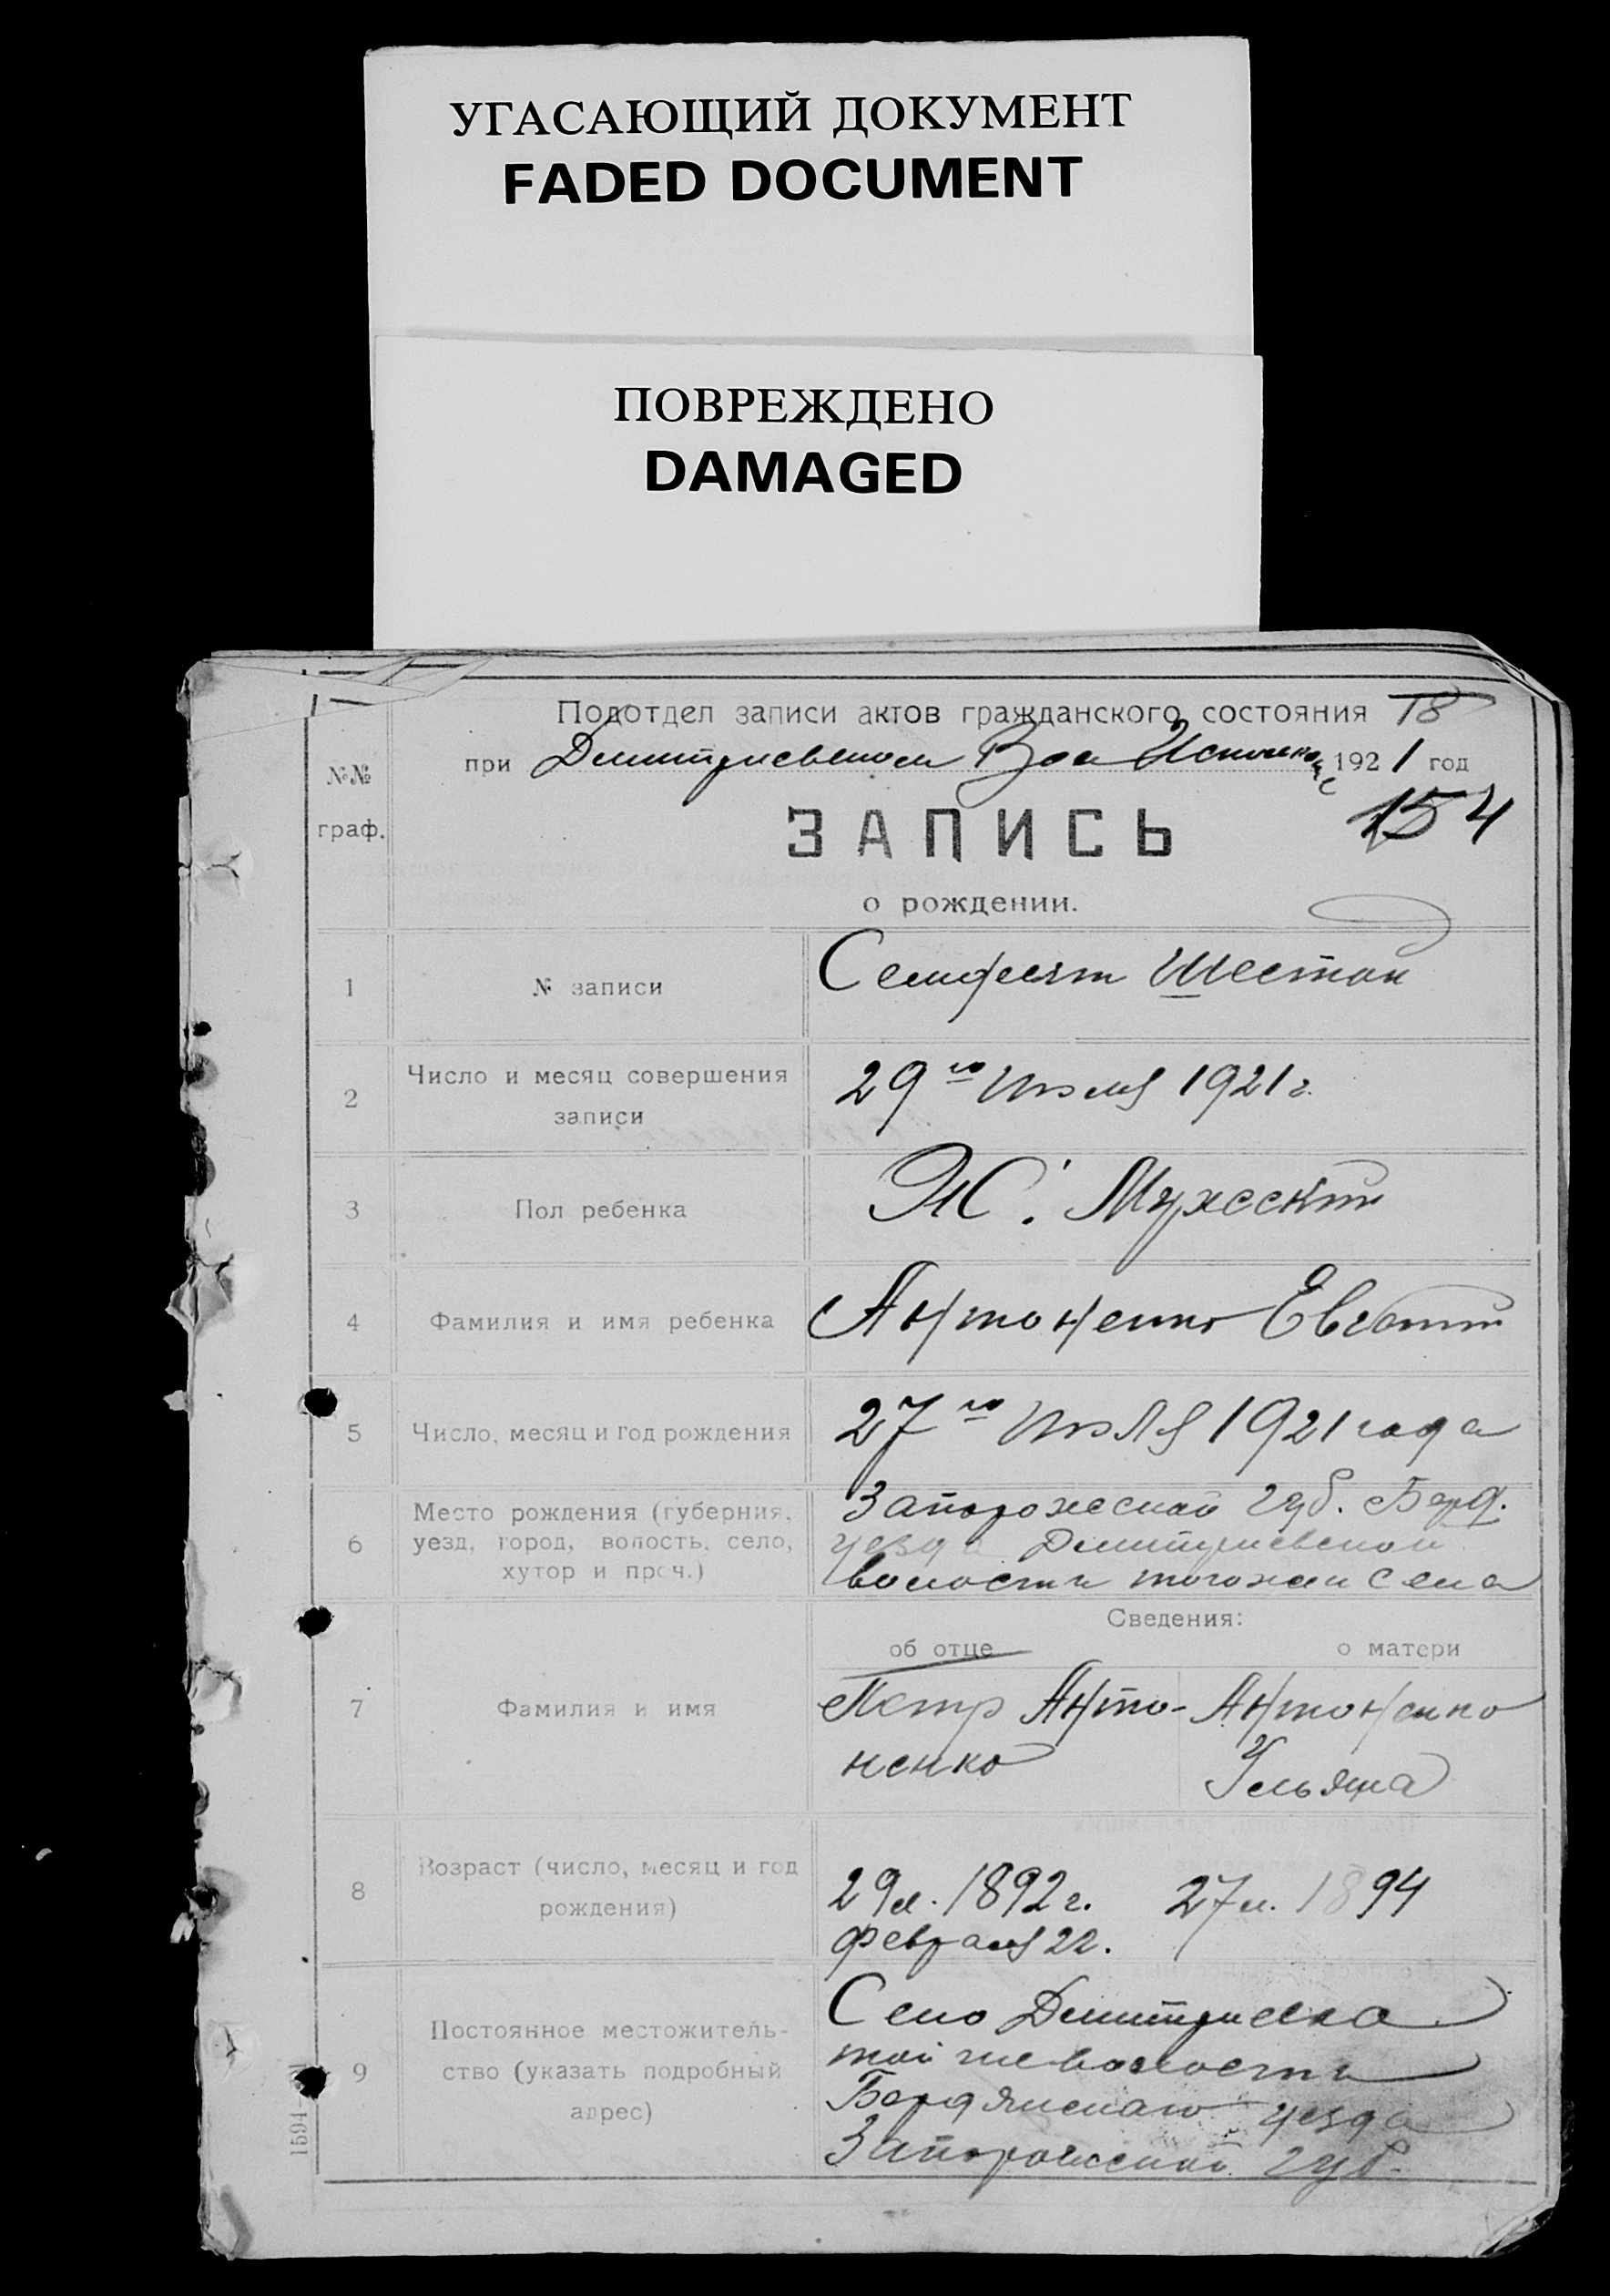 УГАСАЮЩИЙ ДОКУМЕНТ
FADED DOCUMENT
ПОВРЕЖДЕНО
DAMAGED
Подотдел записи актов гражданского состояния 78
№№ при Димитриевском 1921 год
граф.
ЗАПИСЬ 154
о рождении.
1 № записи Семдесят Шестой
2 Число и месяц совершения 29го Июля 1921 г.
записи
3 Пол ребенка Мужеский
4 Фамилия и имя ребенка Антоненко Евгений
5 Число, месяц и год рождения 27го Июля 1921 года
6 Место рождения (губерния, Запорожской губ. Берд.
уезд, город, волость, село, уезда Димитриевской
хутор и проч.) волости того же села
Сведения:
об отце о матери
7 Фамилия и имя Петр Анто- Антоненко
ненко Ульяна
8 Возраст (число, месяц и год 29 л. 1892 г. 27 л. 1894
рождения) февраля 22.
9 Постоянное местожитель- Село Димитриевка
ство (указать подробный той же волости
адрес) Бердянскаго уезда
Запорожской губ.